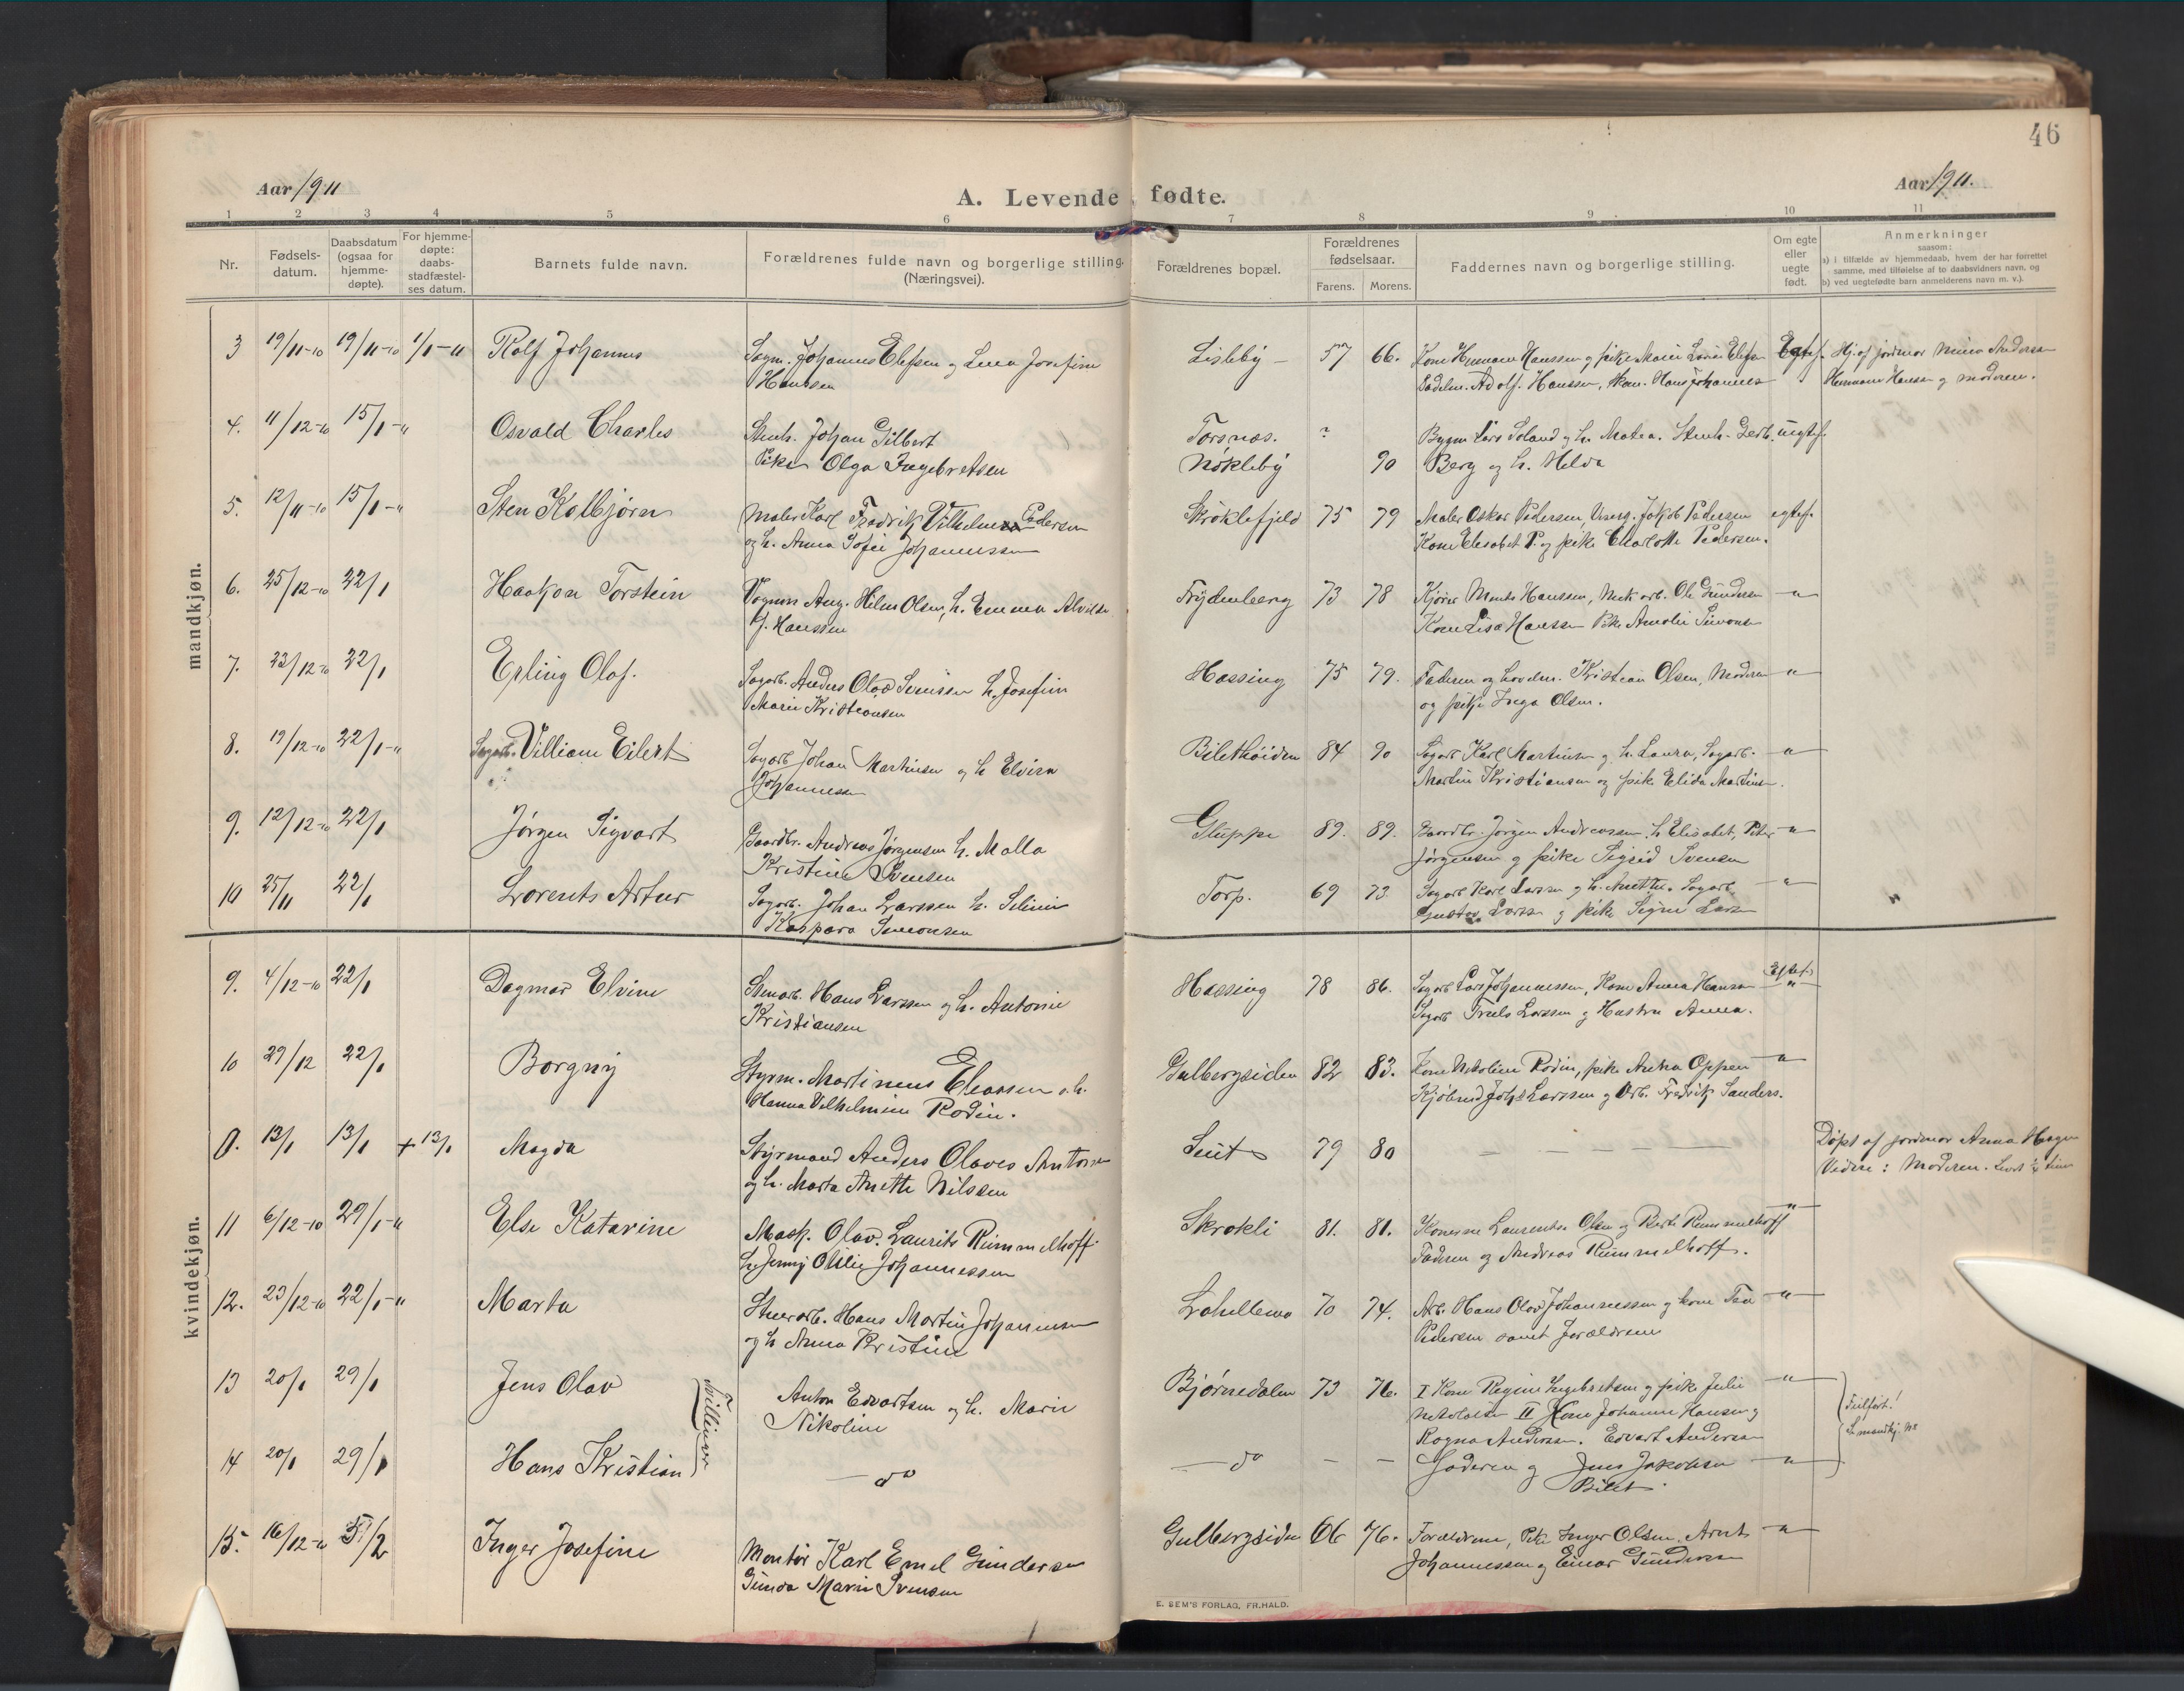 46
Aar 1911
A. Levende fødte.
Aar 1911.
1 2 3 4 5 6 7 8 9 10 11
Nr.
Fødsels-
datum.
Daabsdatum
(ogsaa for
hjemme-
døpte).
For hjemme-
døpte:
daabs-
stadfæstel-
ses datum.
Barnets fulde navn.
Forældrenes fulde navn og borgerlige stilling.
(Næringsvei).
Forældrenes bopæl.
Forældrenes
fødselsaar.
Farens. Morens.
Faddernes navn og borgerlige stilling.
Om egte
eller
uegte
født.
Anmerkninger
saasom:
a) i tilfælde av hjemmedaab, hvem der har forrettet
samme, med tilføielse af to daabsvidners navn, og
b) ved uegtefødte barn anmelderens navn m. v.).
mandkjøn.
3 19/11-10 19/11-10 1/1-11 Rolf Johannes Sagm. Johannes Elefsen og Lena Josefine Lisleby 57 66. Kone Hermane Hanssen og pike Marie Elefsen Egtef. Hj. af jordmor Mina Andersen
Hanssen Adolf Hanssen, Hans Johannes Hermane Hansen og moderen.
4. 11/12-10 15/1-11 Osvald Charles Stenh. Johan Gilbert Torsnæs. ? Bygm Lars Soland og h. Matea. Stenh. uegtef.
Pike Olga Ingebretsen Nøkleby 90 Berg og h. Helda
5. 12/11-10 15/1-11 Sten Kolbjørn Maler Karl Fredrik Vilhelm Pedersen Skröklefjeld 75 79 Maler Oskar Pedersen, Jakob Pedersen egtef.
og h. Anna Sofie Johannessen Kone Elisabet P. og pike Charlotte Pedersen.
6. 25/12-10 22/1 Haakon Torstein Vognm Aug. Hilm Olsen, h. Emma Alvilde Frydenberg 73 78 Kjører Hanssen, Mek arb. Ole Gundersen "
f. Hanssen Kone Lisa Hanssen Pike Amalie Simonsen
7. 23/12-10 22/1 Erling Olaf. Sagarb. Anders Olav h. Josefine Hassing 75 79. Faderen og Kristian Olsen, Moderen "
Marie Kristiansen og pike Inga Olsen.
8. 19/12-10 22/1-11 Villiam Eilert Sagarb Johan Martinsen og h Elvira 84 90 Sagarb Karl Martinsen og h. Laura, Sagarb. "
Johannessen Martin Kristiansen og pike Elida Martinsen.
9. 12/12-10 22/1 Jørgen Sigvart Gaardbr. Andreas Jørgensen h. Malla Gluppe 89. 89. Gaardbr. Jørgen Andreassen, h Elisabet, Peter "
Kristine Svensen Jørgensen og pike Sigrid Svensen
10 25/11 22/1 Lorents Artur Sagarb. Johan Larssen h. Torp. 69 73 Sagarb Karl Larssen og h. Anette. Sagarb. "
Kaspara Simonsen Gustav Larssen og pike Signe Larsen
kvindekjøn.
9. 4/12-10 22/1 Dagmar Elvine Stenarb. Hans Larssen og h. Antonie Hassing 78 86. Sagarb Lars Johannessen, Kone Anna Hansen Egtef. "
Kristiansen Sagarb Truls Larssen og Hustru Anna.
10 29/12 22/1 Borgny Styrm. Martinius Eliassen o. h. Gulbergsiden 82 83. Kone Nikoline Rodin, pike Anna Oppen "
Hanna Vilhelmine Rodin. Kjøbmd Johs Larssen og Arb. Fredrik Sanders.
0. 13/1 13/1 + 13/1 Magda Styrmand Anders Olaves Antonsen Leut 79 80 Døpt af jordmor Anna Hagen
og h. Marta Anette Nilssen Vidne: Moderen.
11 6/12-10 29/1-11 Else Katarine Mask. Olav. Laurits Rummelhoff Skrokli 81. 81. Konerne Laurentse Olsen og Berte Rummelhoff "
h. Jenny Otilie Johannessen Faderen og Andreas Rummelhoff.
12. 23/12-10 22/1-11 Marta Stenarb. Hans Martin Johannessen 70 74. Arb. Hans Olav Johannessen og kone Tea "
og h Anna Kristine Pedersen samt forældrene
13 20/1 29/1 Jens Olav Tvillinger Anton Edvartsen og h. Marie Bjørnedalen 73 76. I Kone Regine Ingebretsen og pike Julie "
Nikoline Nikolaisen II Kone Johanne Hansen og
Ragna Andersen. Edvart Andersen
Feilført!
Se mandkj.
14 20/1 29/1 Hans Kristian do do – – Faderen og Jens Jakobsen "
Bilet.
15. 16/12-10 5/2 Inger Josefine Montør Karl Emel Gundersen Gulbergsiden 66 76. Forældrene, Pike Inger Olsen, Arnt "
Gunda Marie Svensen Johannessen og Einar Gundersen
E. SEM'S FORLAG, FR.HALD.